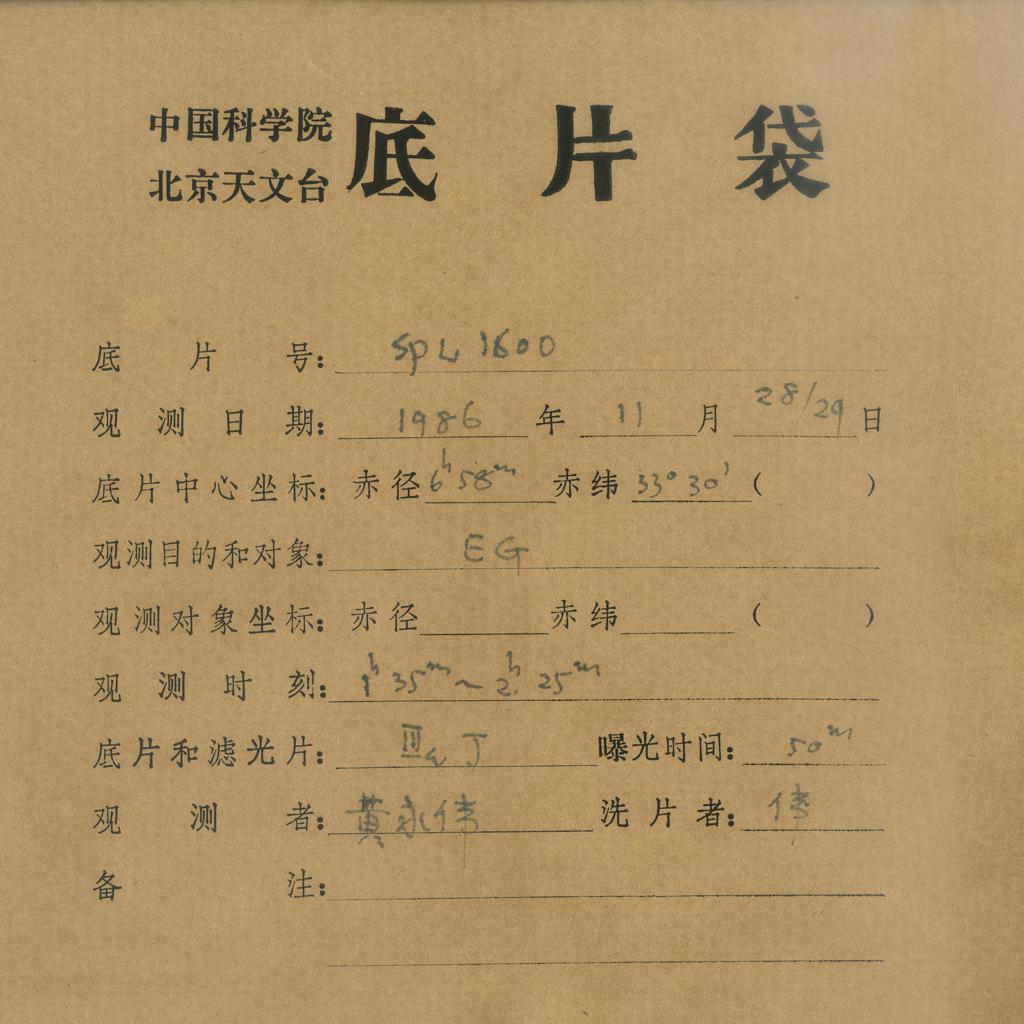 中国科学院
北京天文台 底片袋
底片号： SPL 1600
观测日期： 1986 年 11 月 28/29 日
底片中心坐标： 赤径 6h 58m 赤纬 33° 30' ( )
观测目的和对象： EG
观测对象坐标： 赤径 赤纬 ( )
观测时刻： 1h 35m ~ 2h 25m
底片和滤光片： IIIa J 曝光时间： 50m
观测者： 黄永伟 洗片者： 伟
备注：